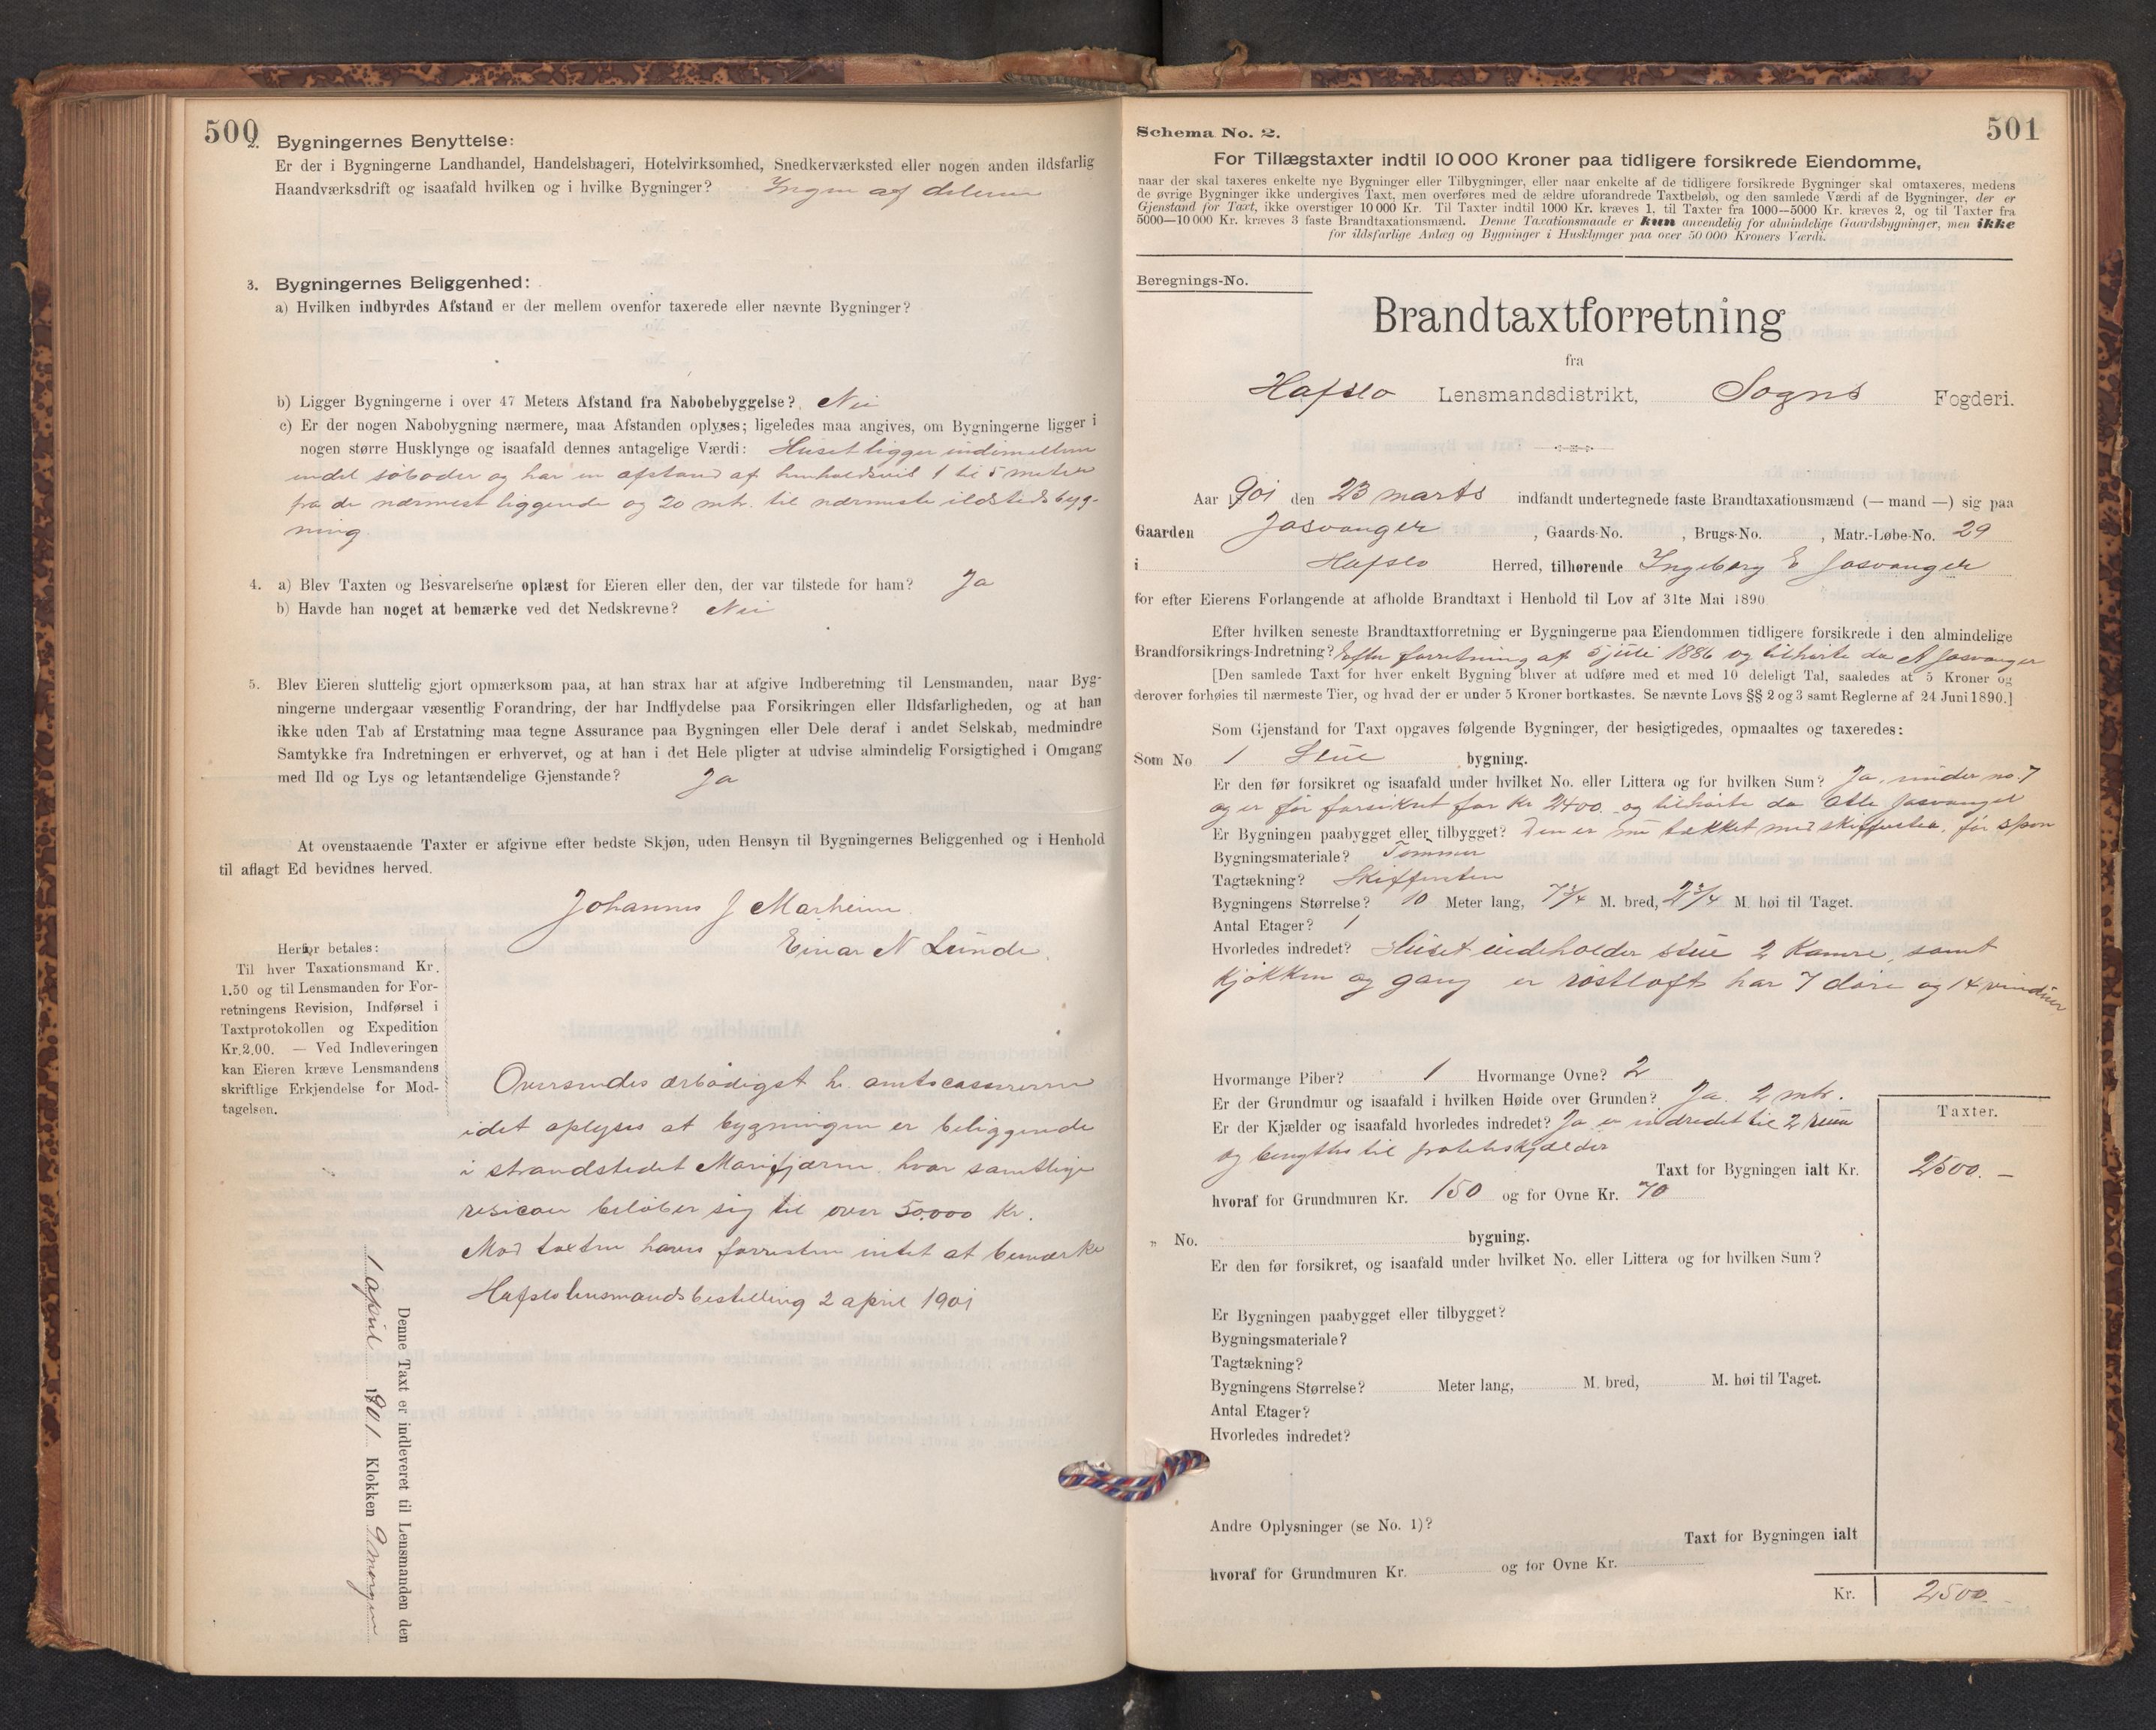 500
2. Bygningernes Benyttelse:
Er der i Bygningerne Landhandel, Handelsbageri, Hotelvirksomhed, Snedkerværksted eller nogen anden ildsfarlig
Haandværksdrift og isaafald hvilken og i hvilke Bygninger? Ingen af delene
3. Bygningernes Beliggenhed:
a) Hvilken indbyrdes Afstand er der mellem ovenfor taxerede eller nævnte Bygninger?
b) Ligger Bygningerne i over 47 Meters Afstand fra Nabobebyggelse? Nei
c) Er der nogen Nabobygning nærmere, maa Afstanden oplyses; ligeledes maa angives, om Bygningerne ligger i
nogen større Husklynge og isaafald dennes antagelige Værdi: Huset ligger indimellem
endel søboder og har en afstand af henholdsvis 1 til 5 meter
fra de nærmest liggende og 20 mtr. til nærmeste ildstedsbyg-
ning
4. a) Blev Taxten og Besvarelserne oplæst for Eieren eller den, der var tilstede for ham? Ja
b) Havde han noget at bemærke ved det Nedskrevne? Nei
5. Blev Eieren sluttelig gjort opmærksom paa, at han strax har at afgive Indberetning til Lensmanden, naar Byg-
ningerne undergaar væsentlig Forandring, der har Indflydelse paa Forsikringen eller Ildsfarligheden, og at han
ikke uden Tab af Erstatning maa tegne Assurance paa Bygningen eller Dele deraf i andet Selskab, medmindre
Samtykke fra Indretningen er erhvervet, og at han i det Hele pligter at udvise almindelig Forsigtighed i Omgang
med Ild og Lys og letantændelige Gjenstande? Ja
At ovenstaaende Taxter er afgivne efter bedste Skjøn, uden Hensyn til Bygningernes Beliggenhed og i Henhold
til aflagt Ed bevidnes herved.
Johannes J Marheim.
Einar N Lunde.
Herfor betales:
Til hver Taxationsmand Kr.
1.50 og til Lensmanden for For-
retningens Revision, Indførsel i
Taxtprotokollen og Expedition
Kr.2.00. — Ved Indleveringen
kan Eieren kræve Lensmandens
skriftlige Erkjendelse for Mod-
tagelsen.
Oversendes ærbødigst hr. amtscassereren
idet oplyses at bygningen er beliggende
i strandstedet Marifjæren, hvor samtlige
resicoer beløber sig til over 50,000 Kr.
Mod taxten haves forresten intet at bemærke
Hafslo lensmandsbestilling 2 april 1901
Denne Taxt er indleveret til Lensmanden den
1 april 1901 Klokken 9 morgen
501
Schema No. 2.
For Tillægstaxter indtil 10 000 Kroner paa tidligere forsikrede Eiendomme,
naar der skal taxeres enkelte nye Bygninger eller Tilbygninger, eller naar enkelte af de tidligere forsikrede Bygninger skal omtaxeres, medens
de øvrige Bygninger ikke undergives Taxt, men overføres med de ældre uforandrede Taxtbeløb, og den samlede Værdi af de Bygninger, der er
Gjenstand for Taxt, ikke overstiger 10 000 Kr. Til Taxter indtil 1000 Kr. kræves 1, til Taxter fra 1000—5000 Kr. kræves 2, og til Taxter fra
5000—10 000 Kr. kræves 3 faste Brandtaxationsmænd. Denne Taxationsmaade er kun anvendelig for almindelige Gaardsbygninger, men ikke
for ildsfarlige Anlæg og Bygninger i Husklynger paa over 50 000 Kroners Værdi.
Beregnings-No.
Brandtaxtforretning
fra
Hafslo Lensmandsdistrikt, Sogns Fogderi.
Aar 1901 den 23 marts indfandt undertegnede faste Brandtaxationsmænd (— mand —) sig paa
Gaarden Josvanger, Gaards-No. , Brugs-No. , Matr.-Løbe-No. 29
i Hafslo Herred, tilhørende Ingeborg E Josvanger
for efter Eierens Forlangende at afholde Brandtaxt i Henhold til Lov af 31te Mai 1890
Efter hvilken seneste Brandtaxtforretning er Bygningerne paa Eiendommen tidligere forsikrede i den almindelige
Brandforsikrings-Indretning? Efter forretning af 5 juli 1886 og tilhørte da A Josvanger
[Den samlede Taxt for hver enkelt Bygning bliver at udføre med et med 10 deleligt Tal, saaledes at 5 Kroner og
derover forhøies til nærmeste Tier, og hvad der er under 5 Kroner bortkastes. Se nævnte Lovs §§ 2 og 3 samt Reglerne af 24 Juni 1890.]
Som Gjenstand for Taxt opgaves følgende Bygninger, der besigtigedes, opmaaltes og taxeredes:
Som No 1 Stue bygning.
Er den før forsikret og isaafald under hvilket No. eller Littera og for hvilken Sum? Ja, under no. 7
og er før forsikret for kr 2400. og tilhørte da Atle Josvanger
Er Bygningen paabygget eller tilbygget? Den er nu tækket med skiffersten, før spon
Bygningsmateriale? Tømmer
Tagtækning? Skiffersten
Bygningens Størrelse? 10 Meter lang, 7 3/4 M. bred, 2 3/4 M. høi til Taget.
Antal Etager? 1
Hvorledes indredet? Huset indeholder stue 2 kamre, samt
kjøkken og gang er røstloft har 7 døre og 14 vinduer
Hvormange Piber? 1 Hvormange Ovne? 2
Er der Grundmur og isaafald i hvilken Høide over Grunden? Ja. 2 mtr.
Er der Kjælder og isaafald hvorledes indredet? Ja er indredet til 2 rum
og benyttes til potetskjælder
Taxter.
Taxt for Bygningen ialt Kr. 2500.—
hvoraf for Grundmuren Kr. 150 og for Ovne Kr. 70
" No. bygning.
Er den før forsikret, og isaafald under hvilket No. eller Littera og for hvilken Sum?
Er Bygningen paabygget eller tilbygget?
Bygningsmateriale?
Tagtækning?
Bygningens Størrelse? Meter lang, M. bred, M. høi til Taget.
Antal Etager?
Hvorledes indredet?
Andre Oplysninger (se No. 1)?
Taxt for Bygningen ialt
hvoraf for Grundmuren Kr. og for Ovne Kr.
Kr. 2500.—